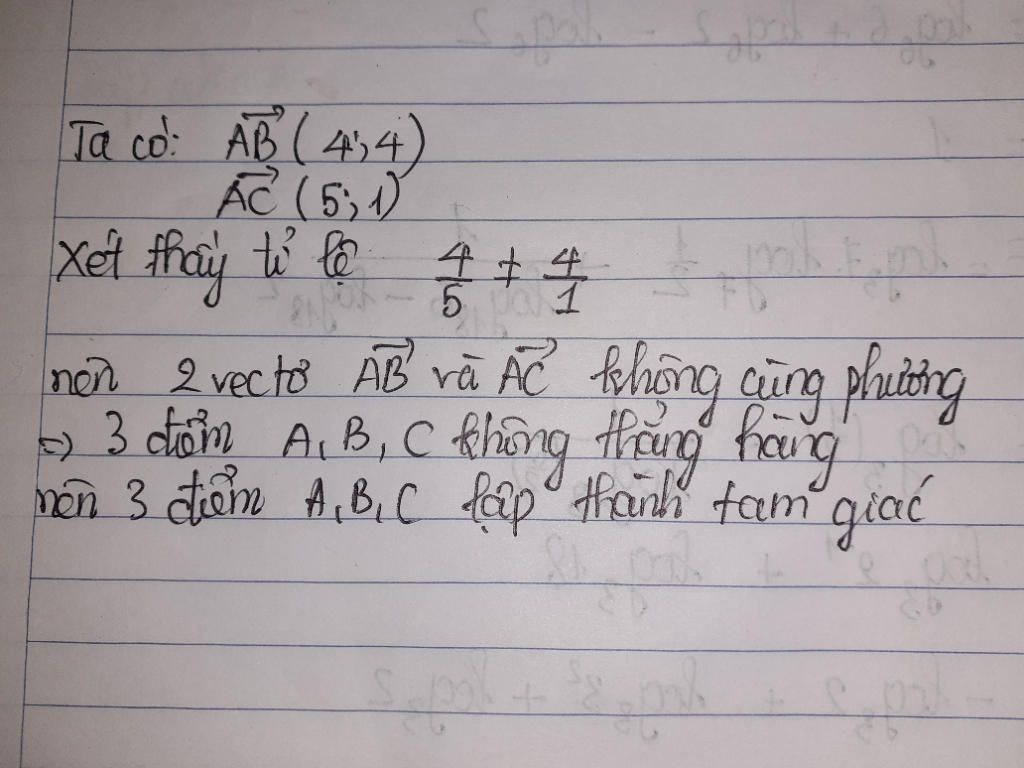 Ta có: AB→ (4;4)
AC→ (5;1)
Xét thấy tỉ lệ 4/5 ≠ 4/1
nên 2 vectơ AB→ và AC→ không cùng phương
=> 3 điểm A, B, C không thẳng hàng
nên 3 điểm A, B, C lập thành tam giác